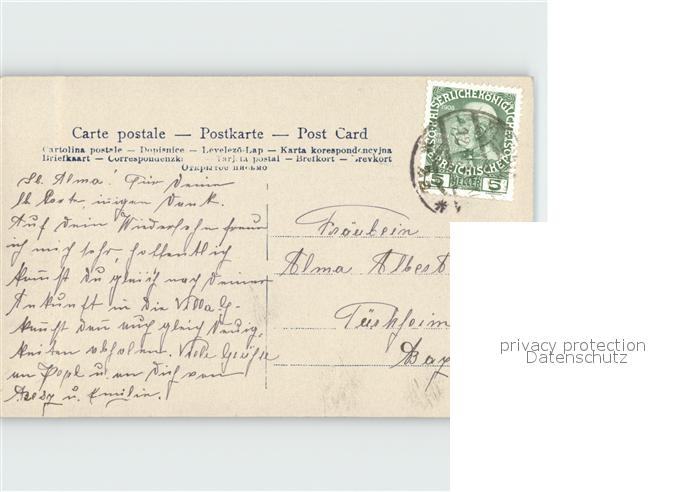 Carte postale — Postkarte — Post Card
Cartolina postale — Dopisnice — Levelező-Lap — Karta korespondencyjna
Briefkaart — Correspondenzk — Tarjeta postal — Brefkort — Brevkort
Открытое письмо
KAISERLICHE KÖNIGLICHE ÖSTERREICHISCHE POST
1908
5 HELLER 5
Lb. Alma! Für Deine
lb. Karte innigen Dank.
Auf Dein Wiedersehn freue
ich mich sehr, hoffentlich
kannst Du gleich nach Deiner
Ankunft in die Villa
kannst dann auch gleich
keiten abholen. Viele Grüße
an Papa u. an Dich von
u. Emilie.
Fräulein
Alma Albert
Türkheim
Bay
privacy protection
Datenschutz